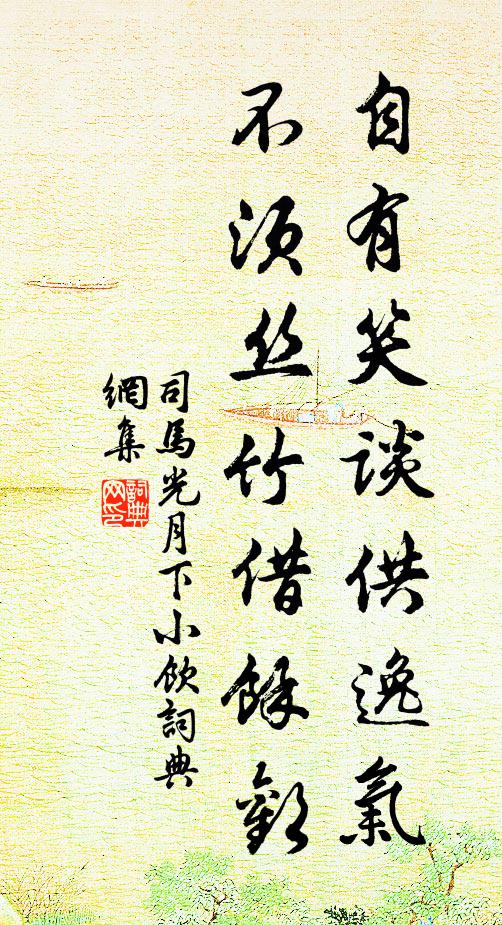 自有笑談供逸氣
不須丝竹借餘歡
司馬光月下小飲詞典
網集
詞典
网印